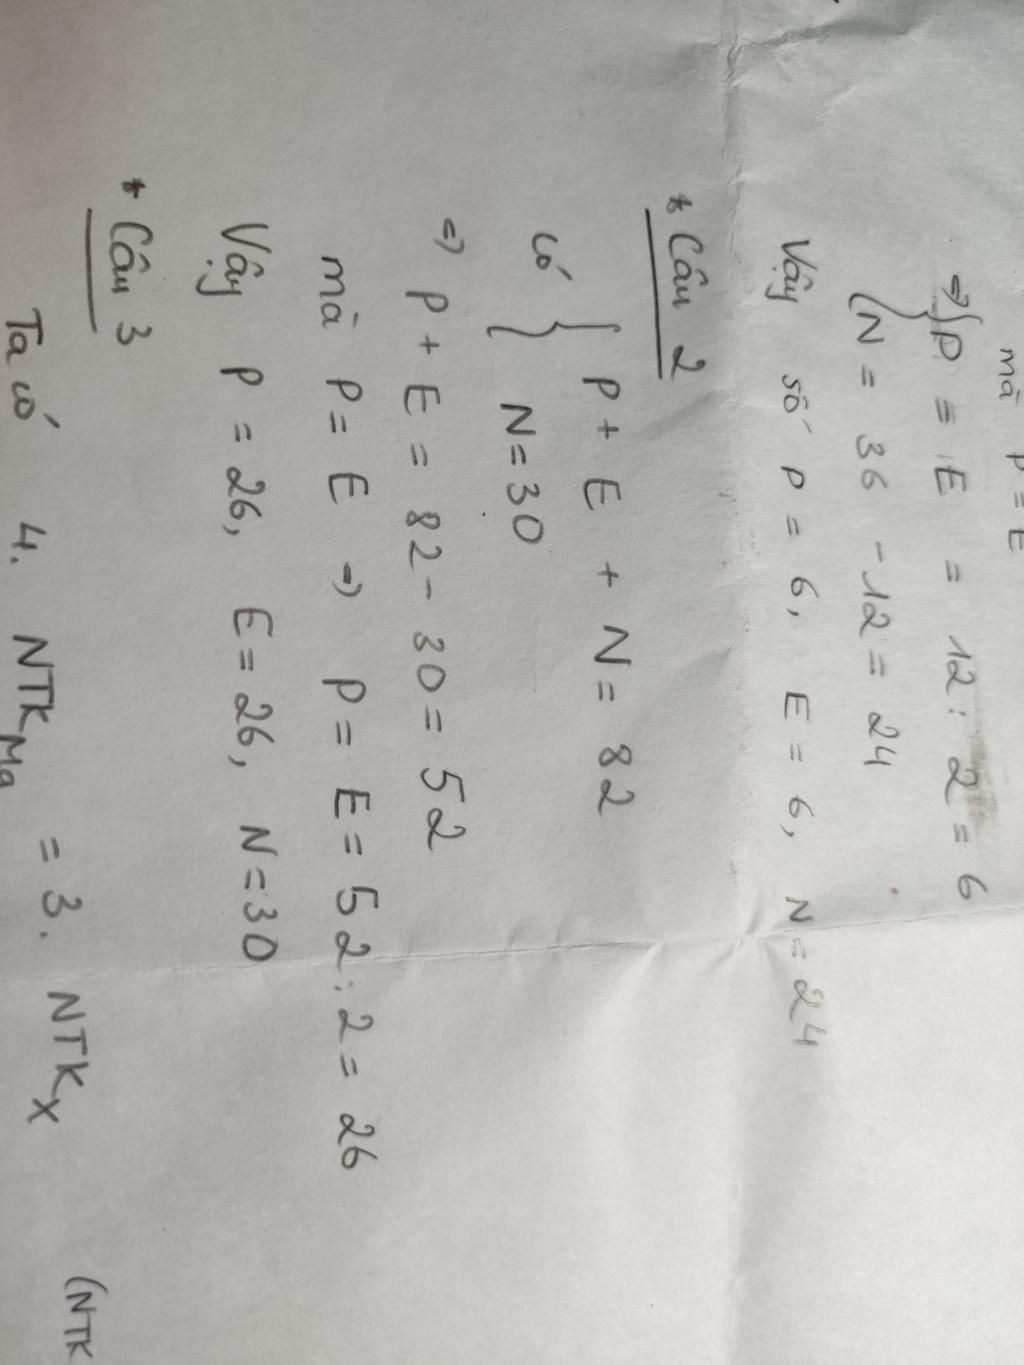 mà P = E
=> { P = E = 12 : 2 = 6
N = 36 - 12 = 24
Vậy số P = 6, E = 6, N = 24
* Câu 2
có { P + E + N = 82
N = 30
=> P + E = 82 - 30 = 52
mà P = E => P = E = 52 : 2 = 26
Vậy P = 26, E = 26, N = 30
* Câu 3
Ta có 4. NTK Mg = 3. NTK X (NTK